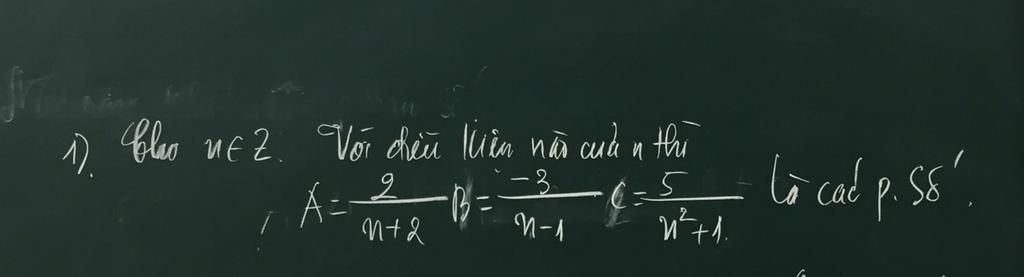 1). Cho n ∈ Z. Với điều kiện nào của n thì
A = 2/(n+2) B = -3/(n-1) C = 5/(n²+1) là các p. Số.